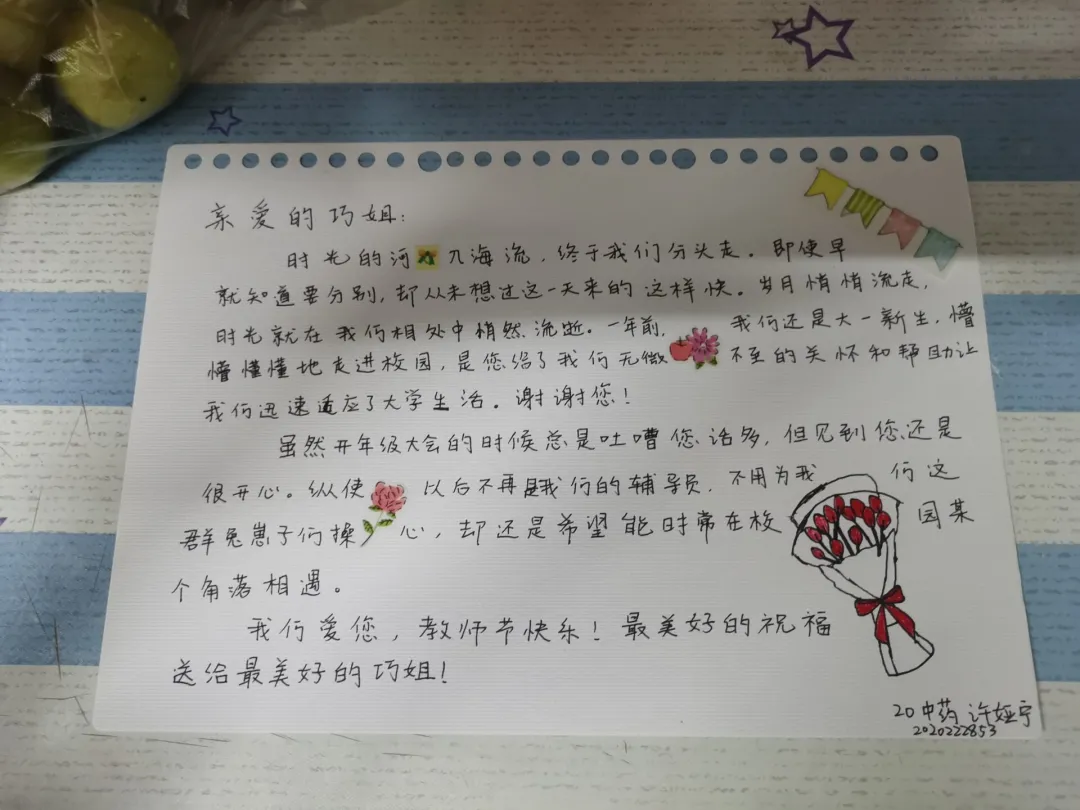 亲爱的巧姐：
时光的河入海流，终于我们分头走。即使早
就知道要分别，却从未想过这一天来的这样快。岁月悄悄流走，
时光就在我们相处中悄然流逝。一年前，我们还是大一新生，懵
懵懂懂地走进校园，是您给了我们无微不至的关怀和帮助让
我们迅速适应了大学生活。谢谢您！
虽然开年级大会的时候总是吐嘈您话多，但见到您还是
很开心。纵使以后不再是我们的辅导员，不用为我们这
群兔崽子们操心，却还是希望能时常在校园某
个角落相遇。
我们爱您，教师节快乐！最美好的祝福
送给最美好的巧姐！
20中药 许娅宁
2020222853